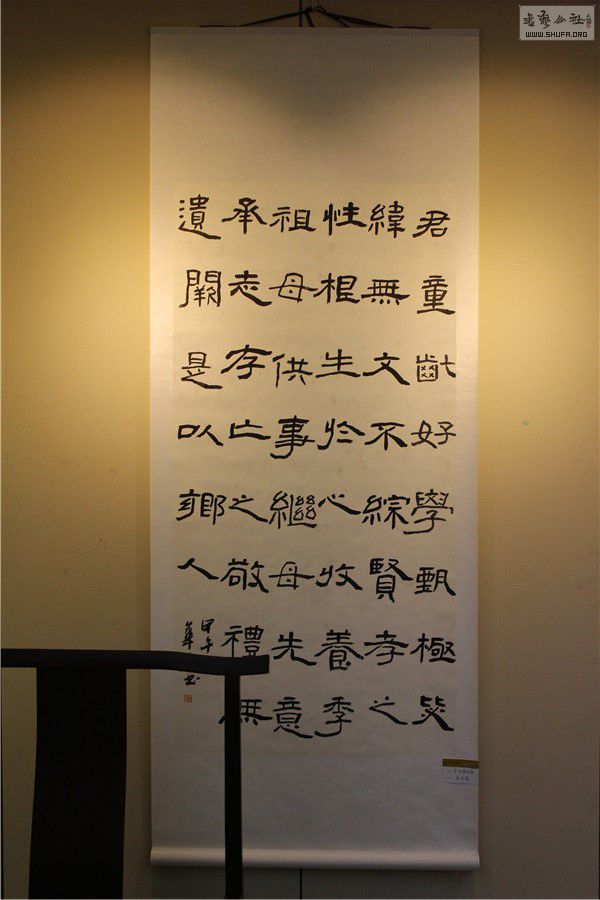 君童齔好學甄極毖
緯無文不綜賢孝之
性根生於心收養季
祖母供事繼母先意
承志存亡之敬禮無
遺闕是以鄉人
甲午
書藝公社
WWW.SHUFA.ORG